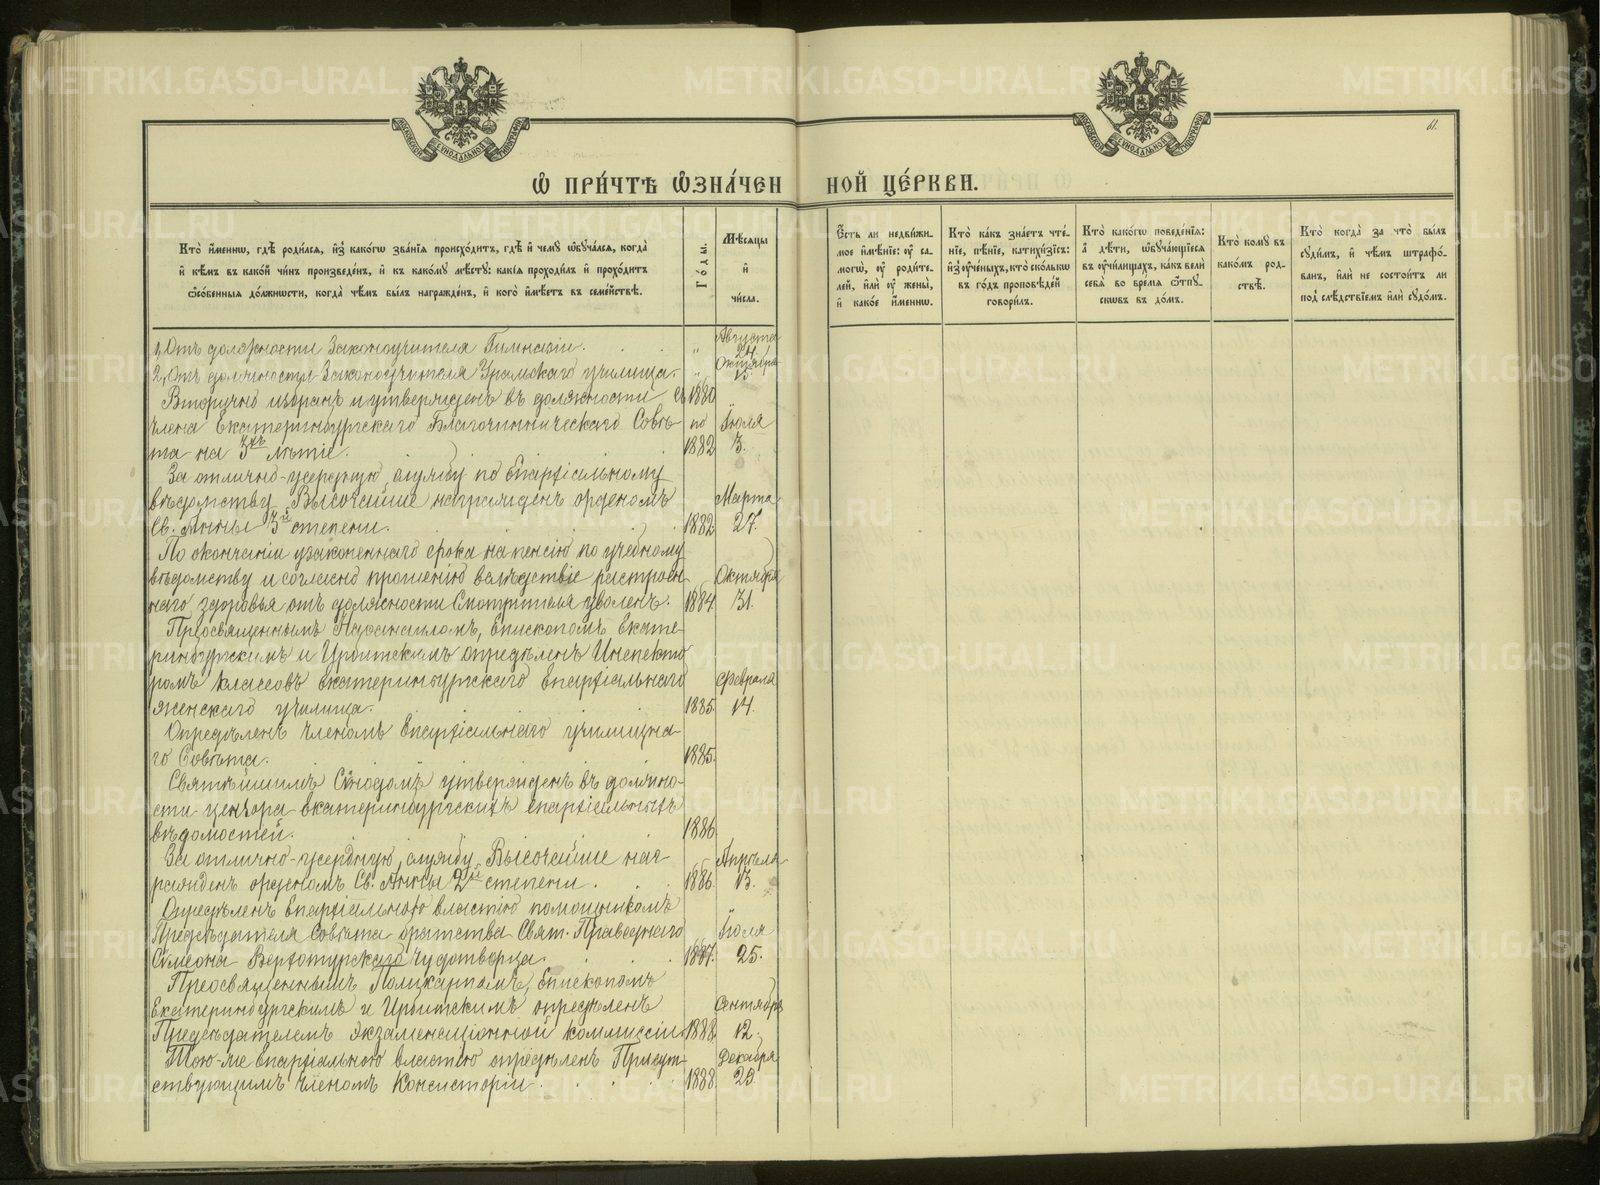 61.
Ѡ ПРИ́ЧТѢ ѠЗНА́ЧЕН НОЙ ЦЕ́РКВИ.
Кто̀ и҆́меннѡ, гдѣ̀ роди́лсѧ, и҆з̾ како́гѡ зва́нїѧ происхо́дитъ, гдѣ̀ и҆ чемꙋ̀ ѡ҆бꙋча́лсѧ, когда̀
и҆ кѣ́мъ въ како́й чи́нъ произведе́нъ, и҆ къ како́мꙋ мѣ́стꙋ: какі̑ѧ проходи́лъ и҆ прохо́дитъ
ѻ҆со́бенныѧ до́лжности, когда̀ чѣ́мъ бы́лъ награжде́нъ, и҆ кого̀ и҆мѣ́етъ въ семе́йствѣ.
Го́ды.
Мѣ́сѧцы
и҆
чи́сла.
Є҆́сть ли недви́жи-
мое и҆мѣ́нїе: ᲂу҆ са-
могѡ̀, ᲂу҆ роди́те-
лей, и҆лѝ ᲂу҆ жены̀,
и҆ како́е и҆́меннѡ.
Кто̀ ка́къ зна́етъ чте́-
нїе, пѣ́нїе, катихи́зїсъ:
и҆з̾ ᲂу҆че́ныхъ, кто̀ ско́лькѡ
въ го́дъ проповѣ́дей
говори́лъ.
Кто̀ како́гѡ поведе́нїѧ:
а҆ дѣ́ти, ѡ҆бꙋча́ющїесѧ
въ ᲂу҆чи́лищахъ, ка́къ велѝ
себѧ̀ во вре́мѧ ѿпꙋ-
сковъ въ до́мъ.
Кто̀ комꙋ̀ въ
како́мъ род-
ствѣ̀.
Кто̀ когда̀ за что̀ бы́лъ
сꙋди́мъ, и҆ чѣ́мъ штрафо́-
ванъ, и҆лѝ не состои́тъ ли
под̾ слѣ́дствїемъ и҆лѝ сꙋдо́мъ.
1, Отъ должности Законоучителя Гимназіи. " Августа 24.
2, Отъ должности Законоучителя Уральскаго училища. " Октября 15.
Вторично избранъ и утвержденъ въ должности Съ 1880
члена Екатеринбургскаго Благочинническаго Совѣ- по Іюля
та на 3хъ лѣтіе. 1882 3.
За отлично-усердную службу по Епархіальному
вѣдомству Высочайше награжденъ орденомъ Марта
Св. Анны 3й степени. 1882 27.
По окончаніи узаконеннаго срока на пенсію по учебному
вѣдомству и согласно прошенію вслѣдствіе растроен- Октября
наго здоровья отъ должности Смотрителя уволенъ. 1884 31.
Преосвященнымъ Нафанаиломъ, Епископомъ Екате-
ринбургскимъ и Ирбитскимъ опредѣленъ Инспекто-
ромъ классовъ Екатеринбургскаго Епархіальнаго Февраля
женскаго училища. 1885. 14.
Опредѣленъ членомъ Епархіальнаго училищна-
го Совѣта. 1885.
Святѣйшимъ Сѵнодомъ утвержденъ въ должно-
сти цензора Екатеринбургскихъ Епархіальныхъ
вѣдомостей. 1886.
За отлично-усердную службу Высочайше наг- Апрѣля
ражденъ орденомъ Св. Анны 2й степени. 1886. 13.
Опредѣленъ Епархіальною властію помощникомъ
Предсѣдателя Совѣта братства Свят. Праведнаго Іюля
Сѵмеона Верхотурскаго Чудотворца. 1887. 25.
Преосвященнымъ Поликарпомъ, Епископомъ
Екатеринбургскимъ и Ирбитскимъ опредѣленъ Сентября
Предсѣдателемъ экзаменаціонной коммиссіи. 1888 12.
Тою-же Епархіальною властію опредѣленъ Присут- Декабря
ствующимъ членомъ Консисторіи. 1888. 29.